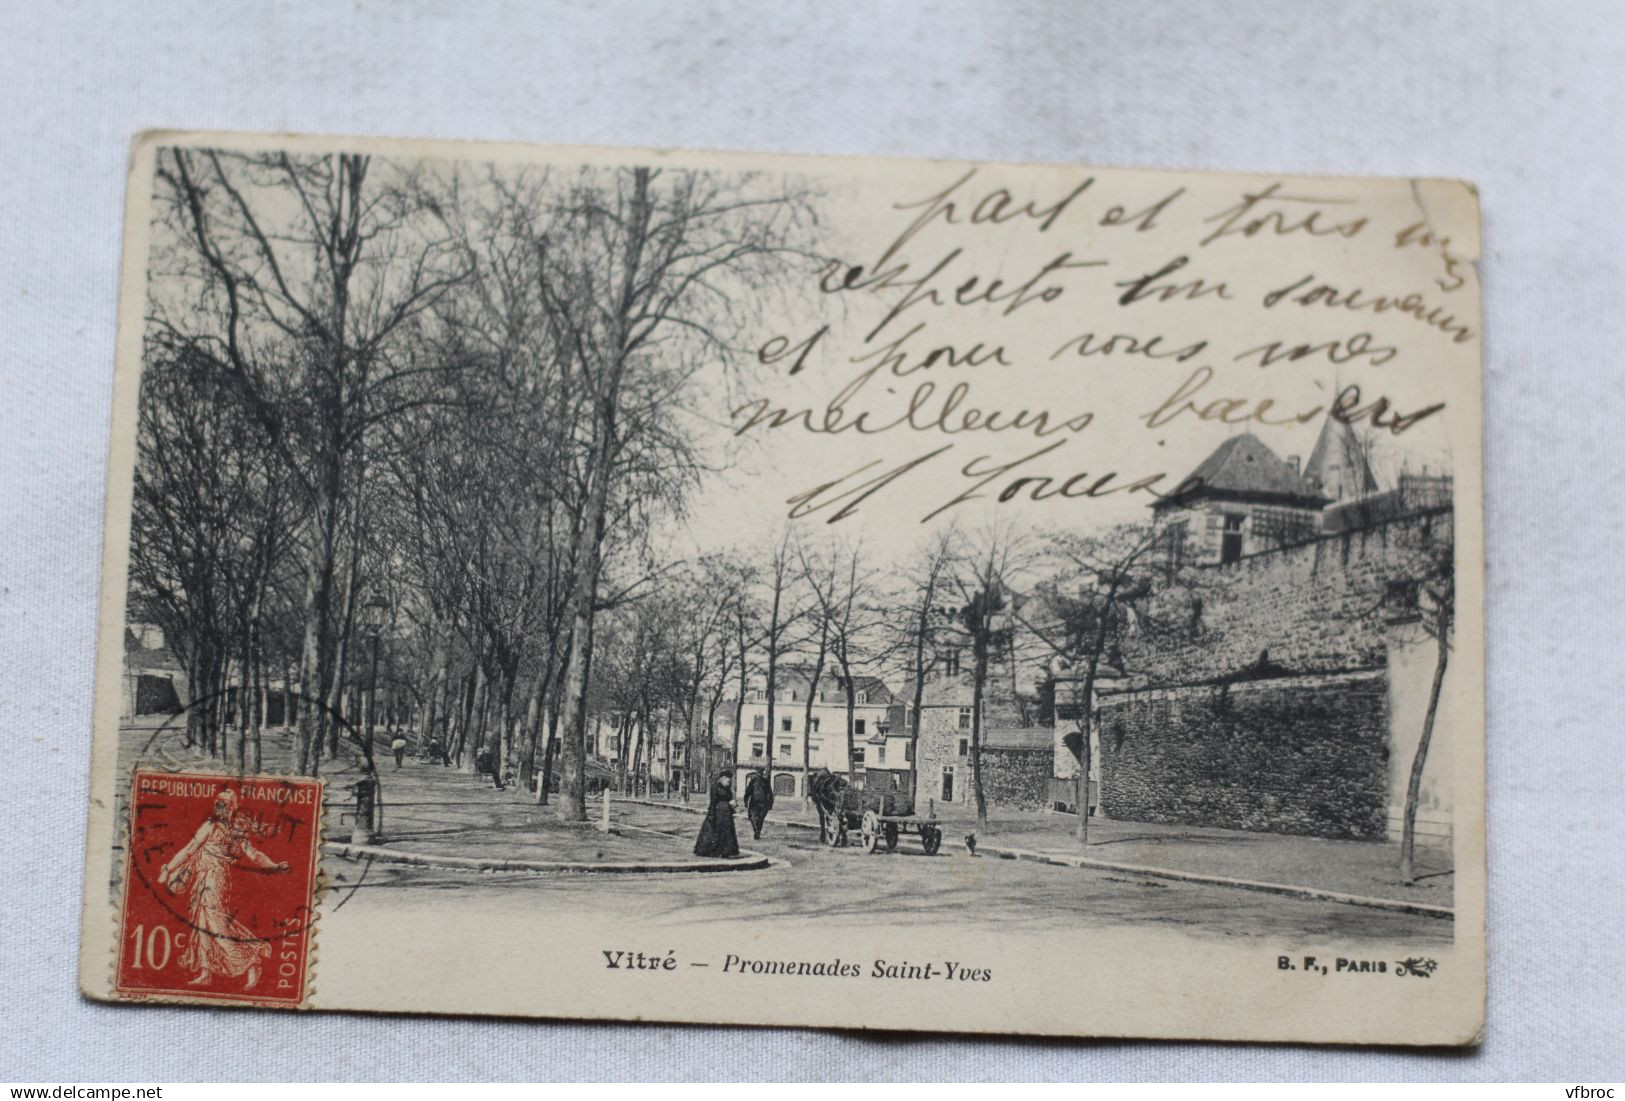 part et tous mes
respects bon souvenir
et pour vous mes
meilleurs baisers
Louise
REPUBLIQUE FRANÇAISE
10c
POSTES
AOUT
Vitré – Promenades Saint-Yves
B. F., PARIS
vfbroc